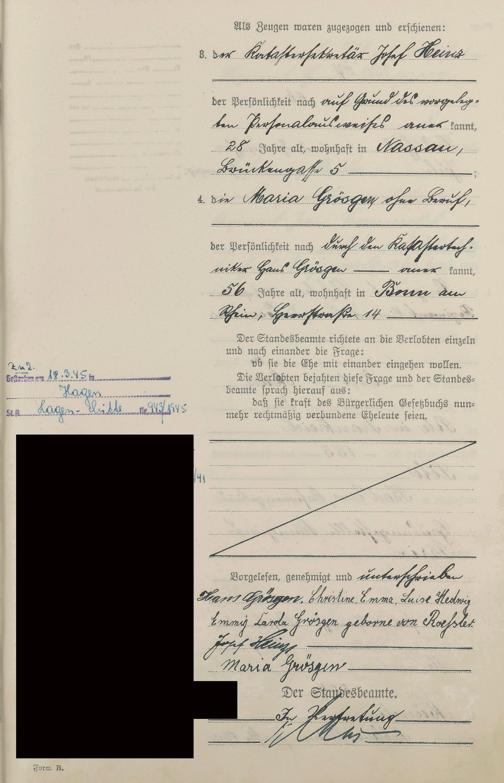 Als Zeugen waren zugezogen und erschienen:
3. der Katastersekretär Josef Heinz
der Persönlichkeit nach auf Grund des vorgeleg-
ten Personalausweises aner kannt,
28 Jahre alt, wohnhaft in Nassau,
Brückengasse 5 ;
4. die Maria Grösgen ohne Beruf,
der Persönlichkeit nach durch den Katastertech-
niker Hans Grösgen — aner kannt,
56 Jahre alt, wohnhaft in Bonn am
Rhein, Heerstraße 14
Der Standesbeamte richtete an die Verlobten einzeln
und nach einander die Frage:
ob sie die Ehe mit einander eingehen wollen.
Die Verlobten bejahten diese Frage und der Standes-
beamte sprach hierauf aus:
daß sie kraft des Bürgerlichen Gesetzbuchs nun-
mehr rechtmäßig verbundene Eheleute seien.
zu 2.
Gestorben am 18.3.45 in
Hagen
St.A. Hagen-Mitte Nr. 943/1945
/41
Vorgelesen, genehmigt und unterschrieben
Hans Grösgen. Christine Emma Luise Hedwig
Emmy Larda Grösgen geborne von Roessler.
Josef Heinz
Maria Grösgen
Der Standesbeamte.
In Vertretung
Form B.